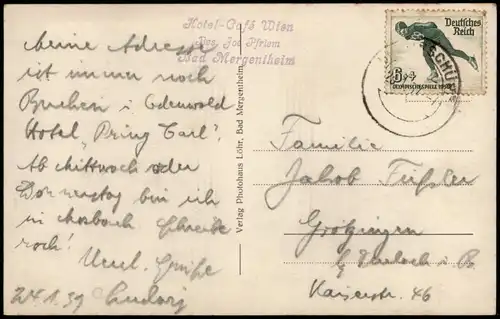 Hotel-Café Wien
Bes. Jos. Pfriem
Bad Mergentheim
Meine Adresse
ist immer noch
Buchen i. Odenwald
Hotel „Prinz Carl".
Ab Mittwoch oder
Donnerstag bin ich
in Mosbach. Schreibe
noch!
Herzl. Grüße
24.1.39 Ludwig
Verlag Photohaus Löhr, Bad Mergentheim
Deutsches
Reich
6+4
Familie
Jakob Füßler
Grötzingen
b/ Durlach i. B.
Kaiserstr. 46